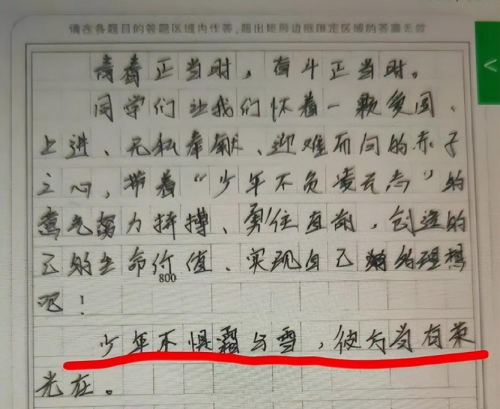 请在各题目的答题区域内作答,超出矩形边框限定区域的答案无效
青春正当时,奋斗正当时。
同学们让我们怀着一颗爱国、
上进、无私奉献、迎难而向的赤子
之心,带着“少年不负凌云志”的
勇气努力拼搏、勇往直前,创造的
己的生命价值、实现自己的理想
800
吧!
少年不惧霜与雪,彼方尚有荣
光在。